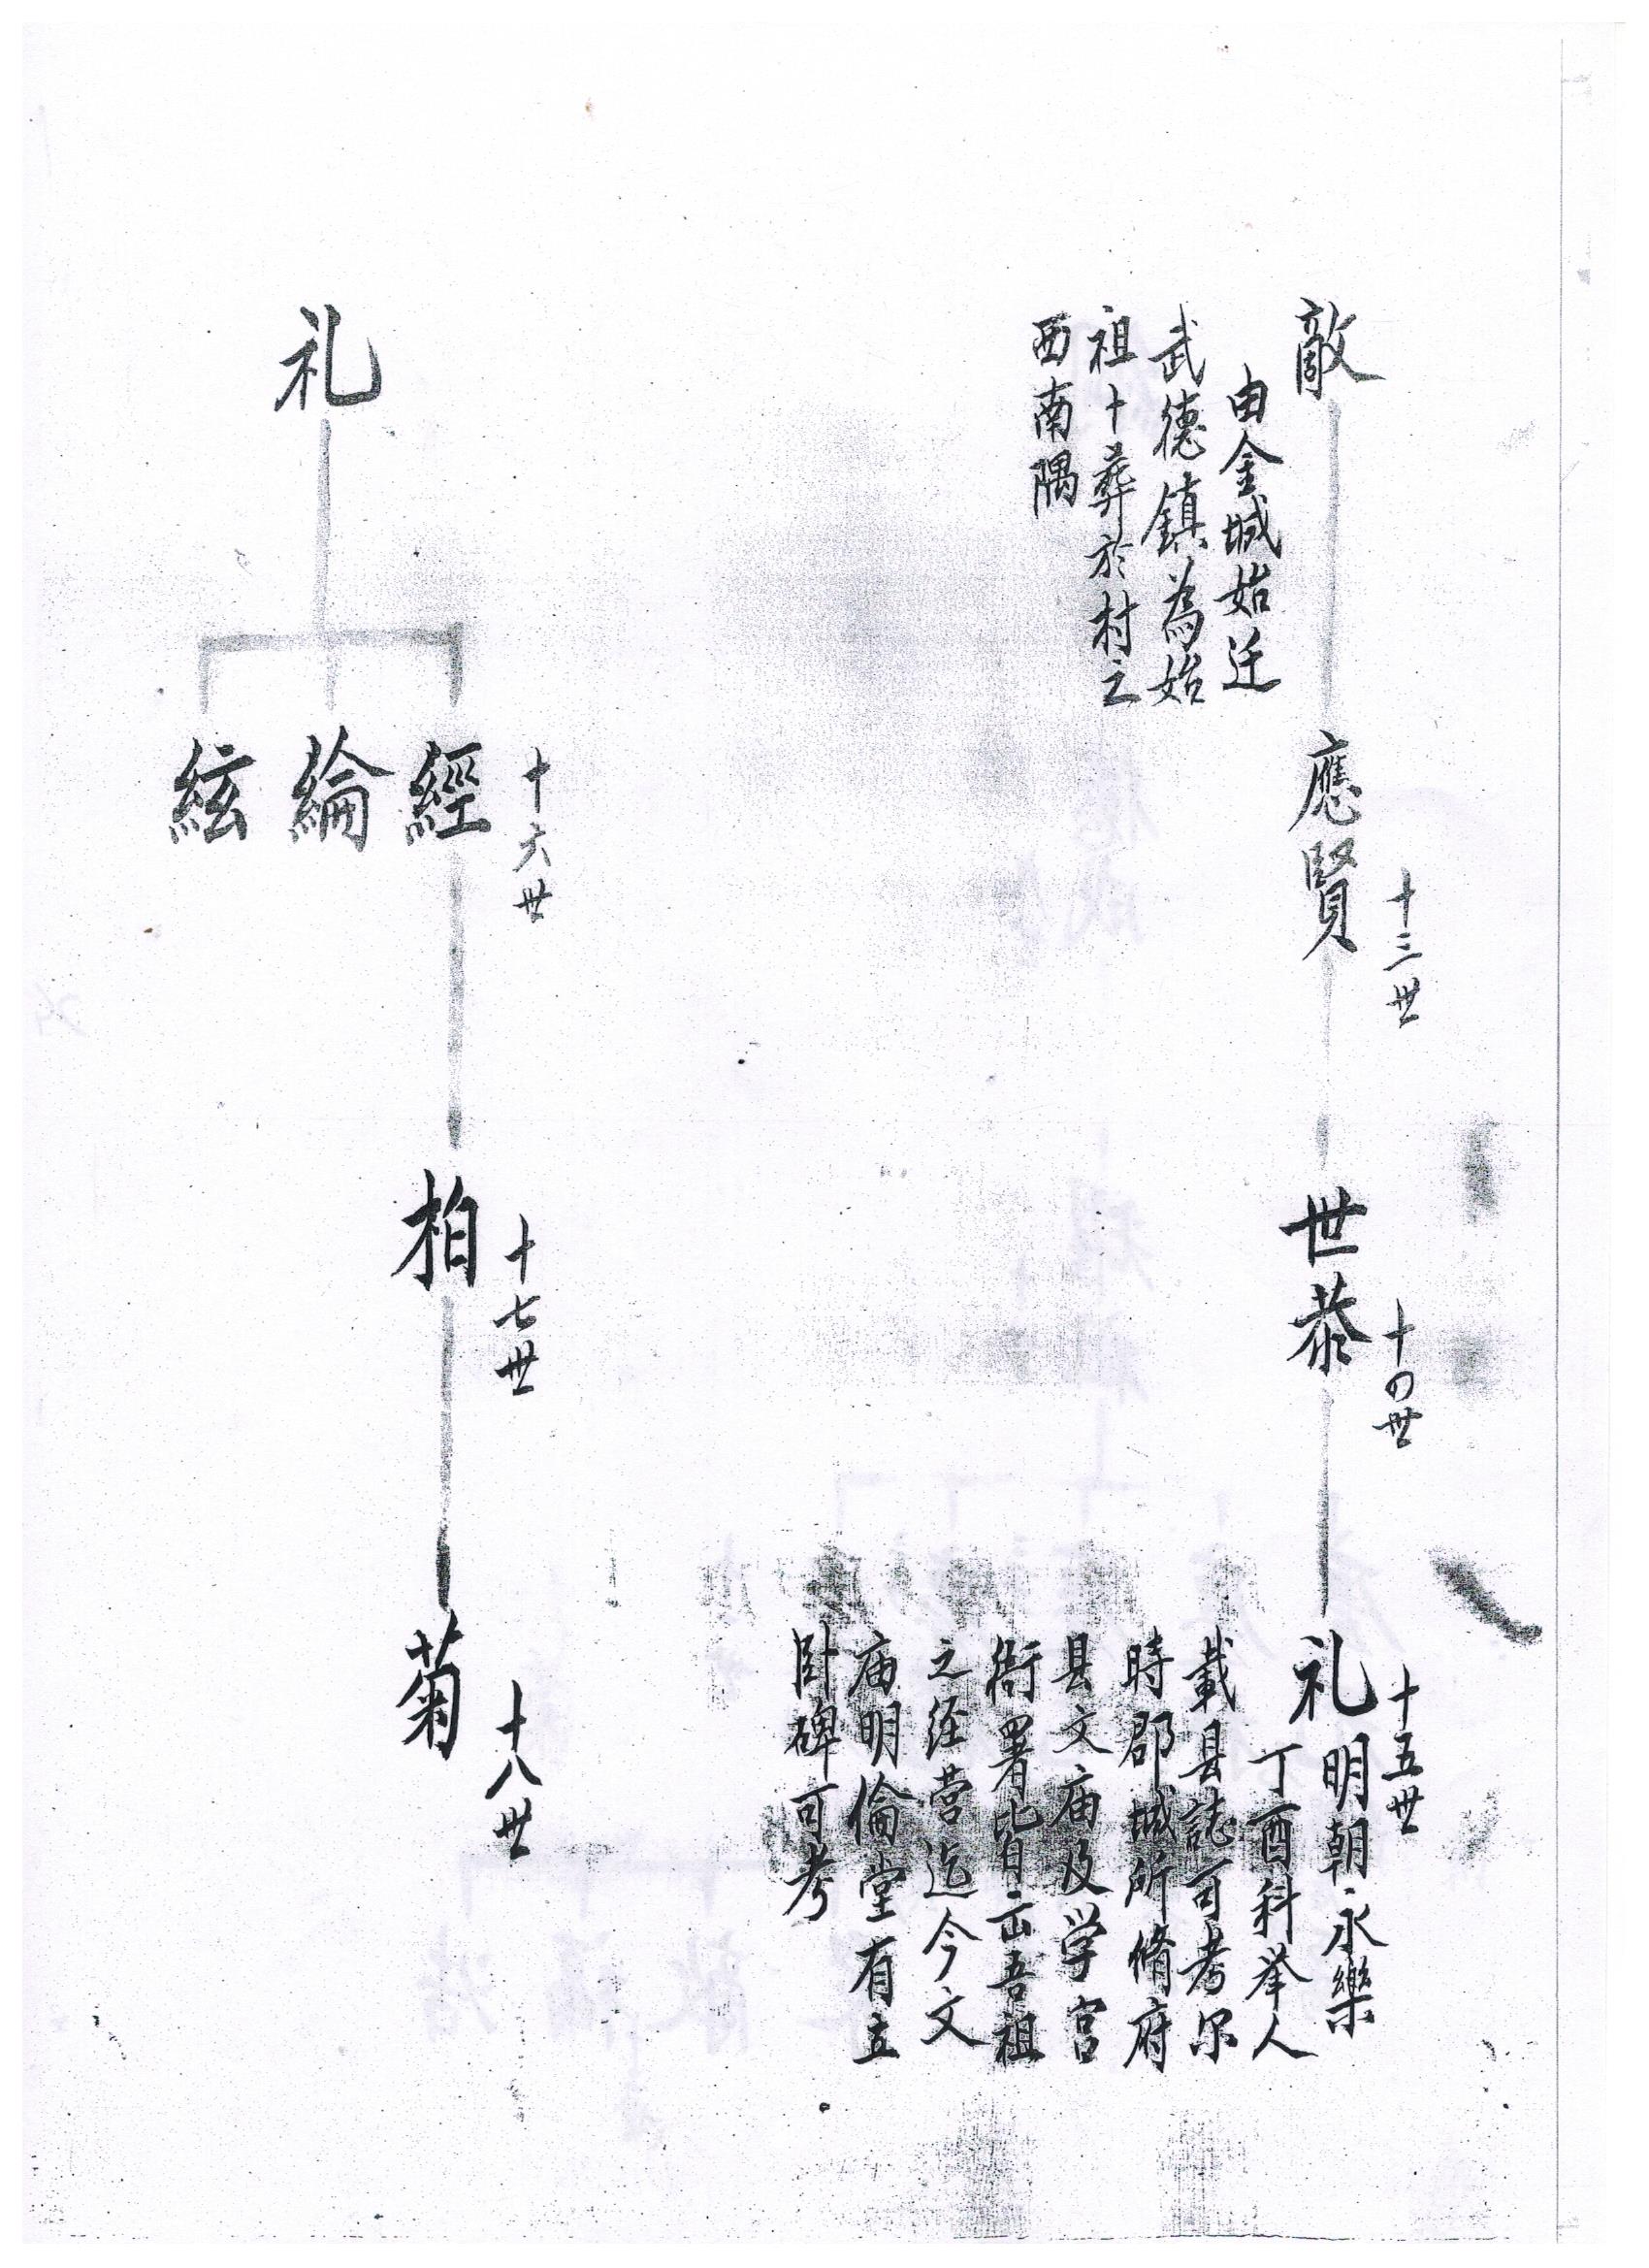 敵
由金城始迁
武德鎮為始
祖卜葬於村之
西南隅
應賢
十三世
世恭
十四世
礼
十五世
明朝永樂
丁酉科举人
載县誌可考尔
時郡城所脩府
县文庙及学宫
衙署皆云吾祖
之经营迄今文
庙明倫堂有立
卧碑可考
礼
十六世
經
綸
絃
十七世
柏
十八世
菊